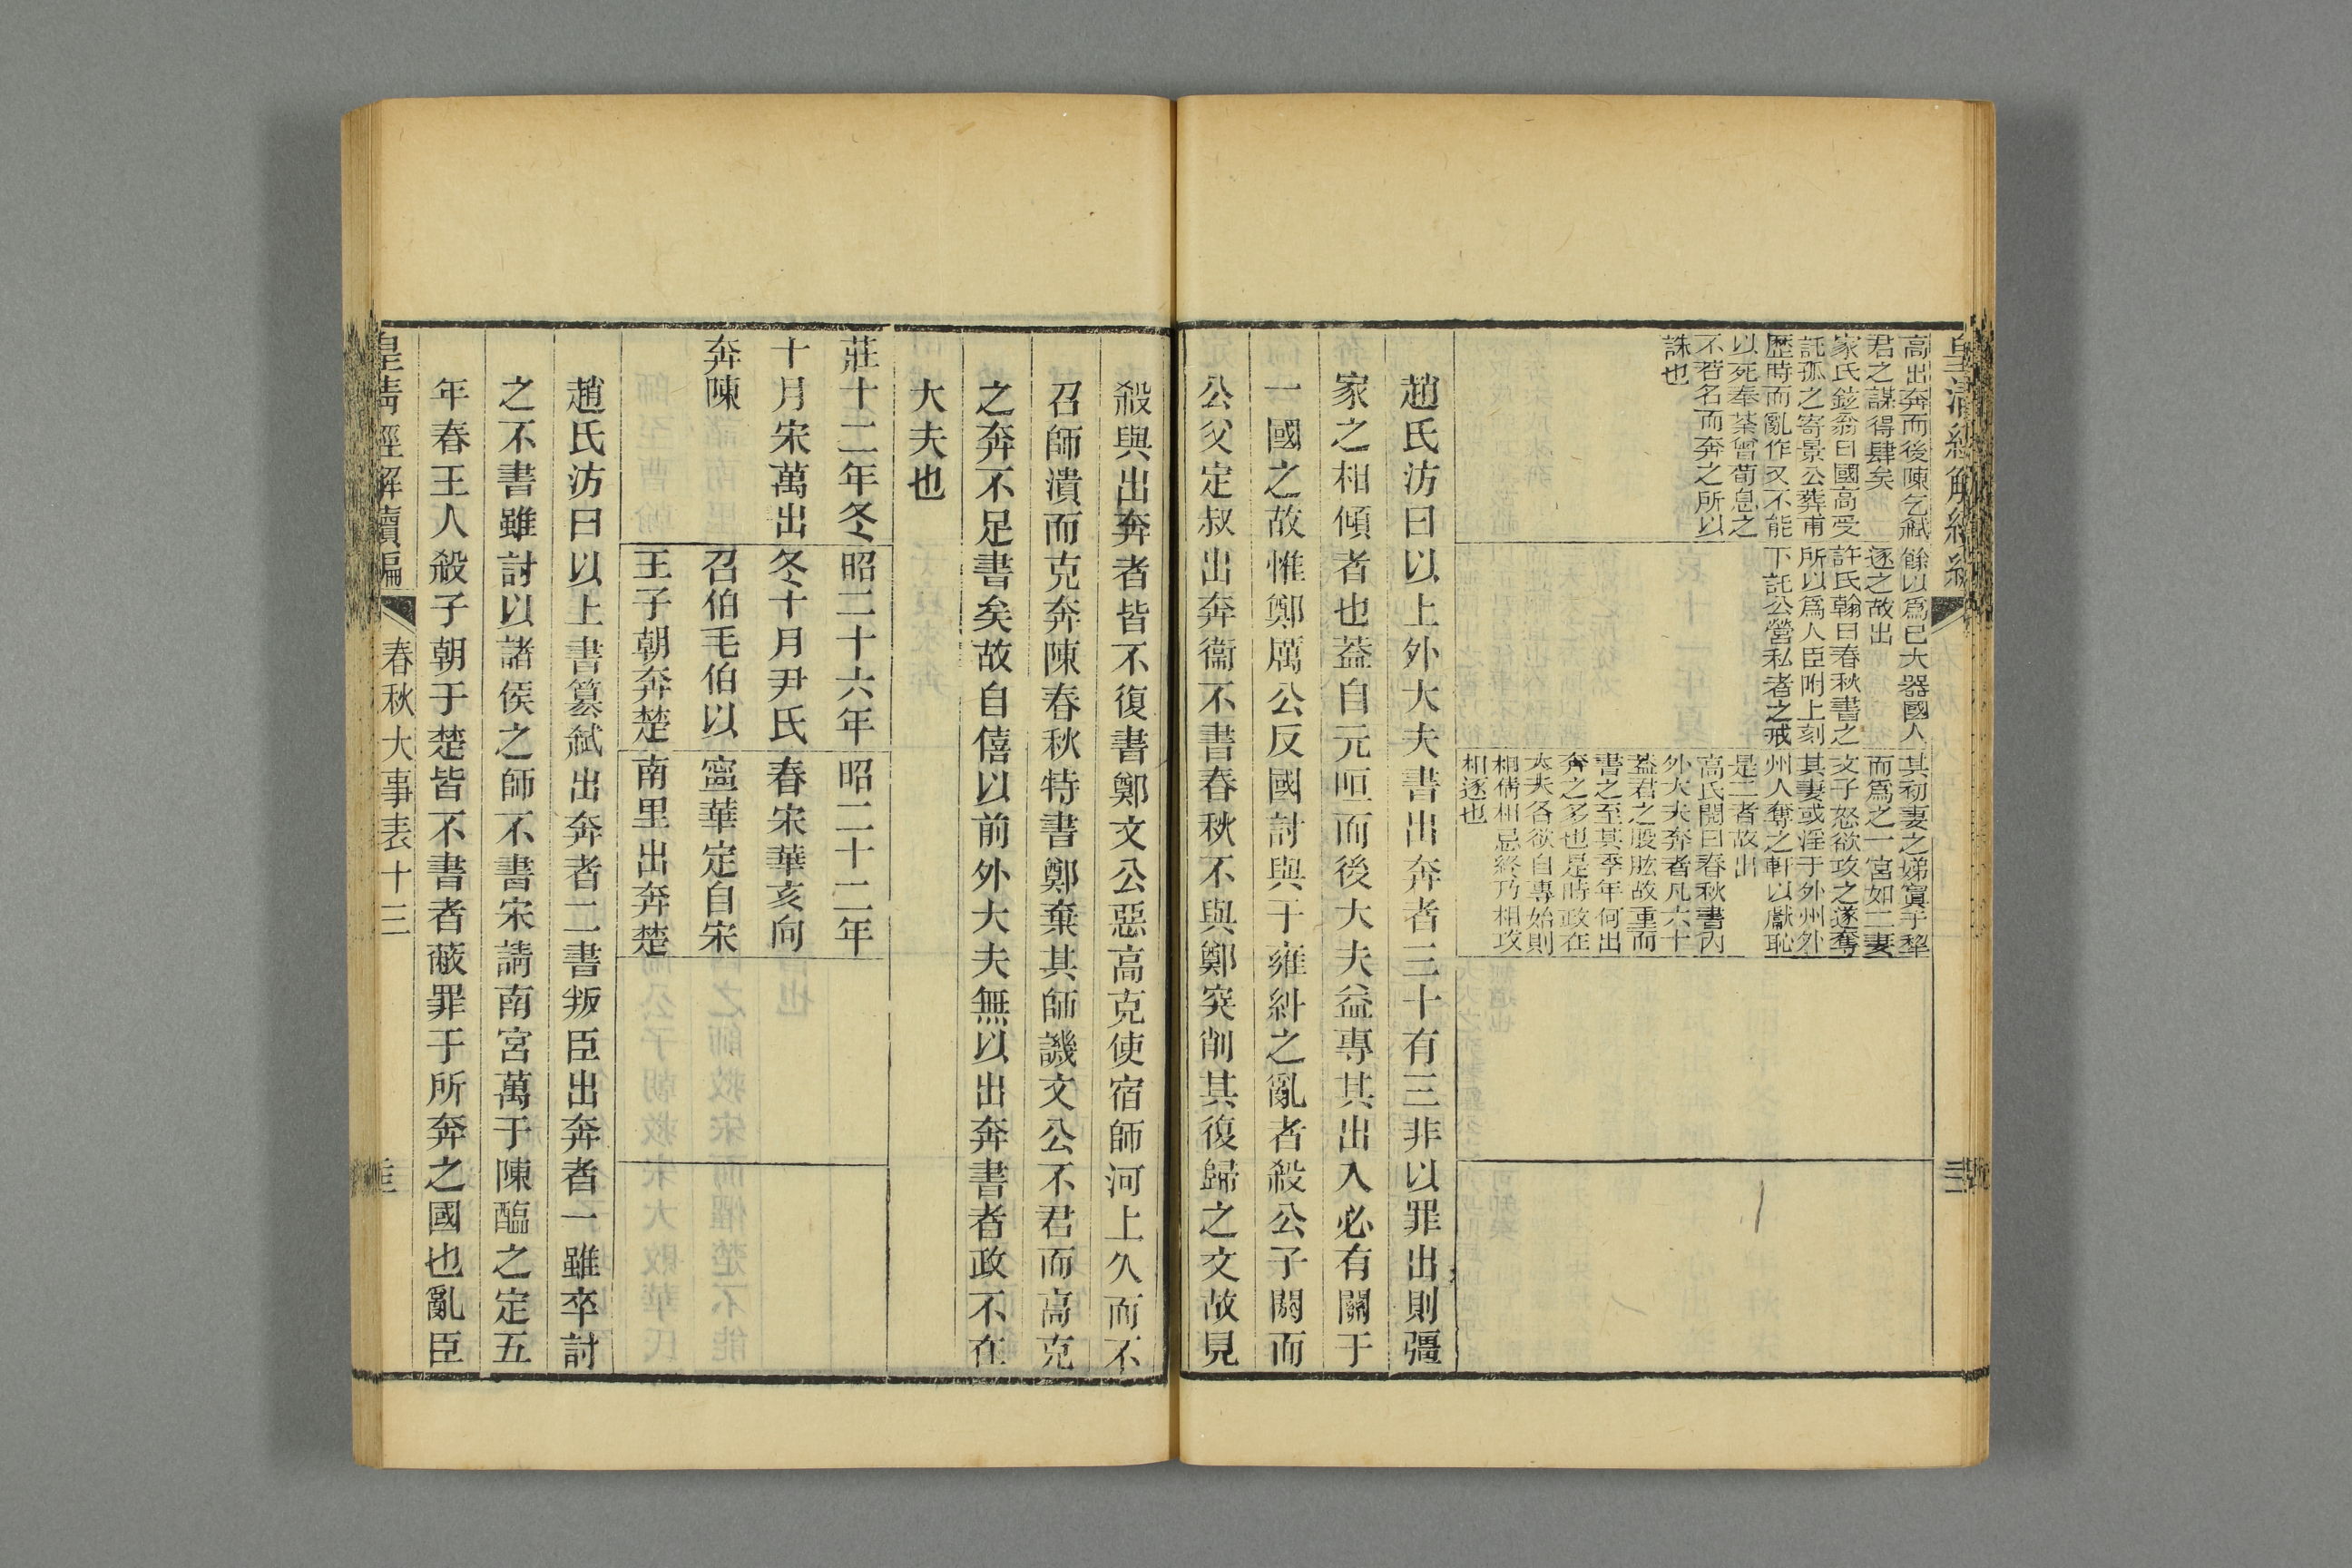 高出奔而後陳乞弒
君之謀得肆矣
家氏鉉翁曰國高受
託孤之寄景公葬甫
歷時而亂作又不能
以死奉荼曾荀息之
不若名而奔之所以
誅也
餘以爲己大器國人
逐之故出
許氏翰曰春秋書之
所以爲人臣附上刻
下託公營私者之戒
其初妻之娣寘于犂
而爲之一宮如二妻
文子怒欲攻之遂奪
其妻或淫于外州外
州人奪之軒以獻恥
是二者故出
高氏閌曰春秋書內
外大夫奔者凡六十
蓋君之股肱故重而
書之至其季年何出
奔之多也是時政在
大夫各欲自專始則
相傾相忌終乃相攻
相逐也
趙氏汸曰以上外大夫書出奔者三十有三非以罪出則彊
家之相傾者也蓋自元咺而後大夫益專其出入必有關于
一國之故惟鄭厲公反國討與于雍糾之亂者殺公子閼而
公父定叔出奔衞不書春秋不與鄭突削其復歸之文故見
殺與出奔者皆不復書鄭文公惡高克使宿師河上久而不
召師潰而克奔陳春秋特書鄭棄其師譏文公不君而高克
之奔不足書矣故自僖以前外大夫無以出奔書者政不在
大夫也
莊十二年冬
十月宋萬出
奔陳
昭二十六年
冬十月尹氏
召伯毛伯以
王子朝奔楚
昭二十二年
春宋華亥向
寧華定自宋
南里出奔楚
趙氏汸曰以上書篡弒出奔者二書叛臣出奔者一雖卒討
之不書雖討以諸侯之師不書宋請南宮萬于陳醢之定五
年春王人殺子朝于楚皆不書者蔽罪于所奔之國也亂臣
皇淸經解續編
春秋大事表十三